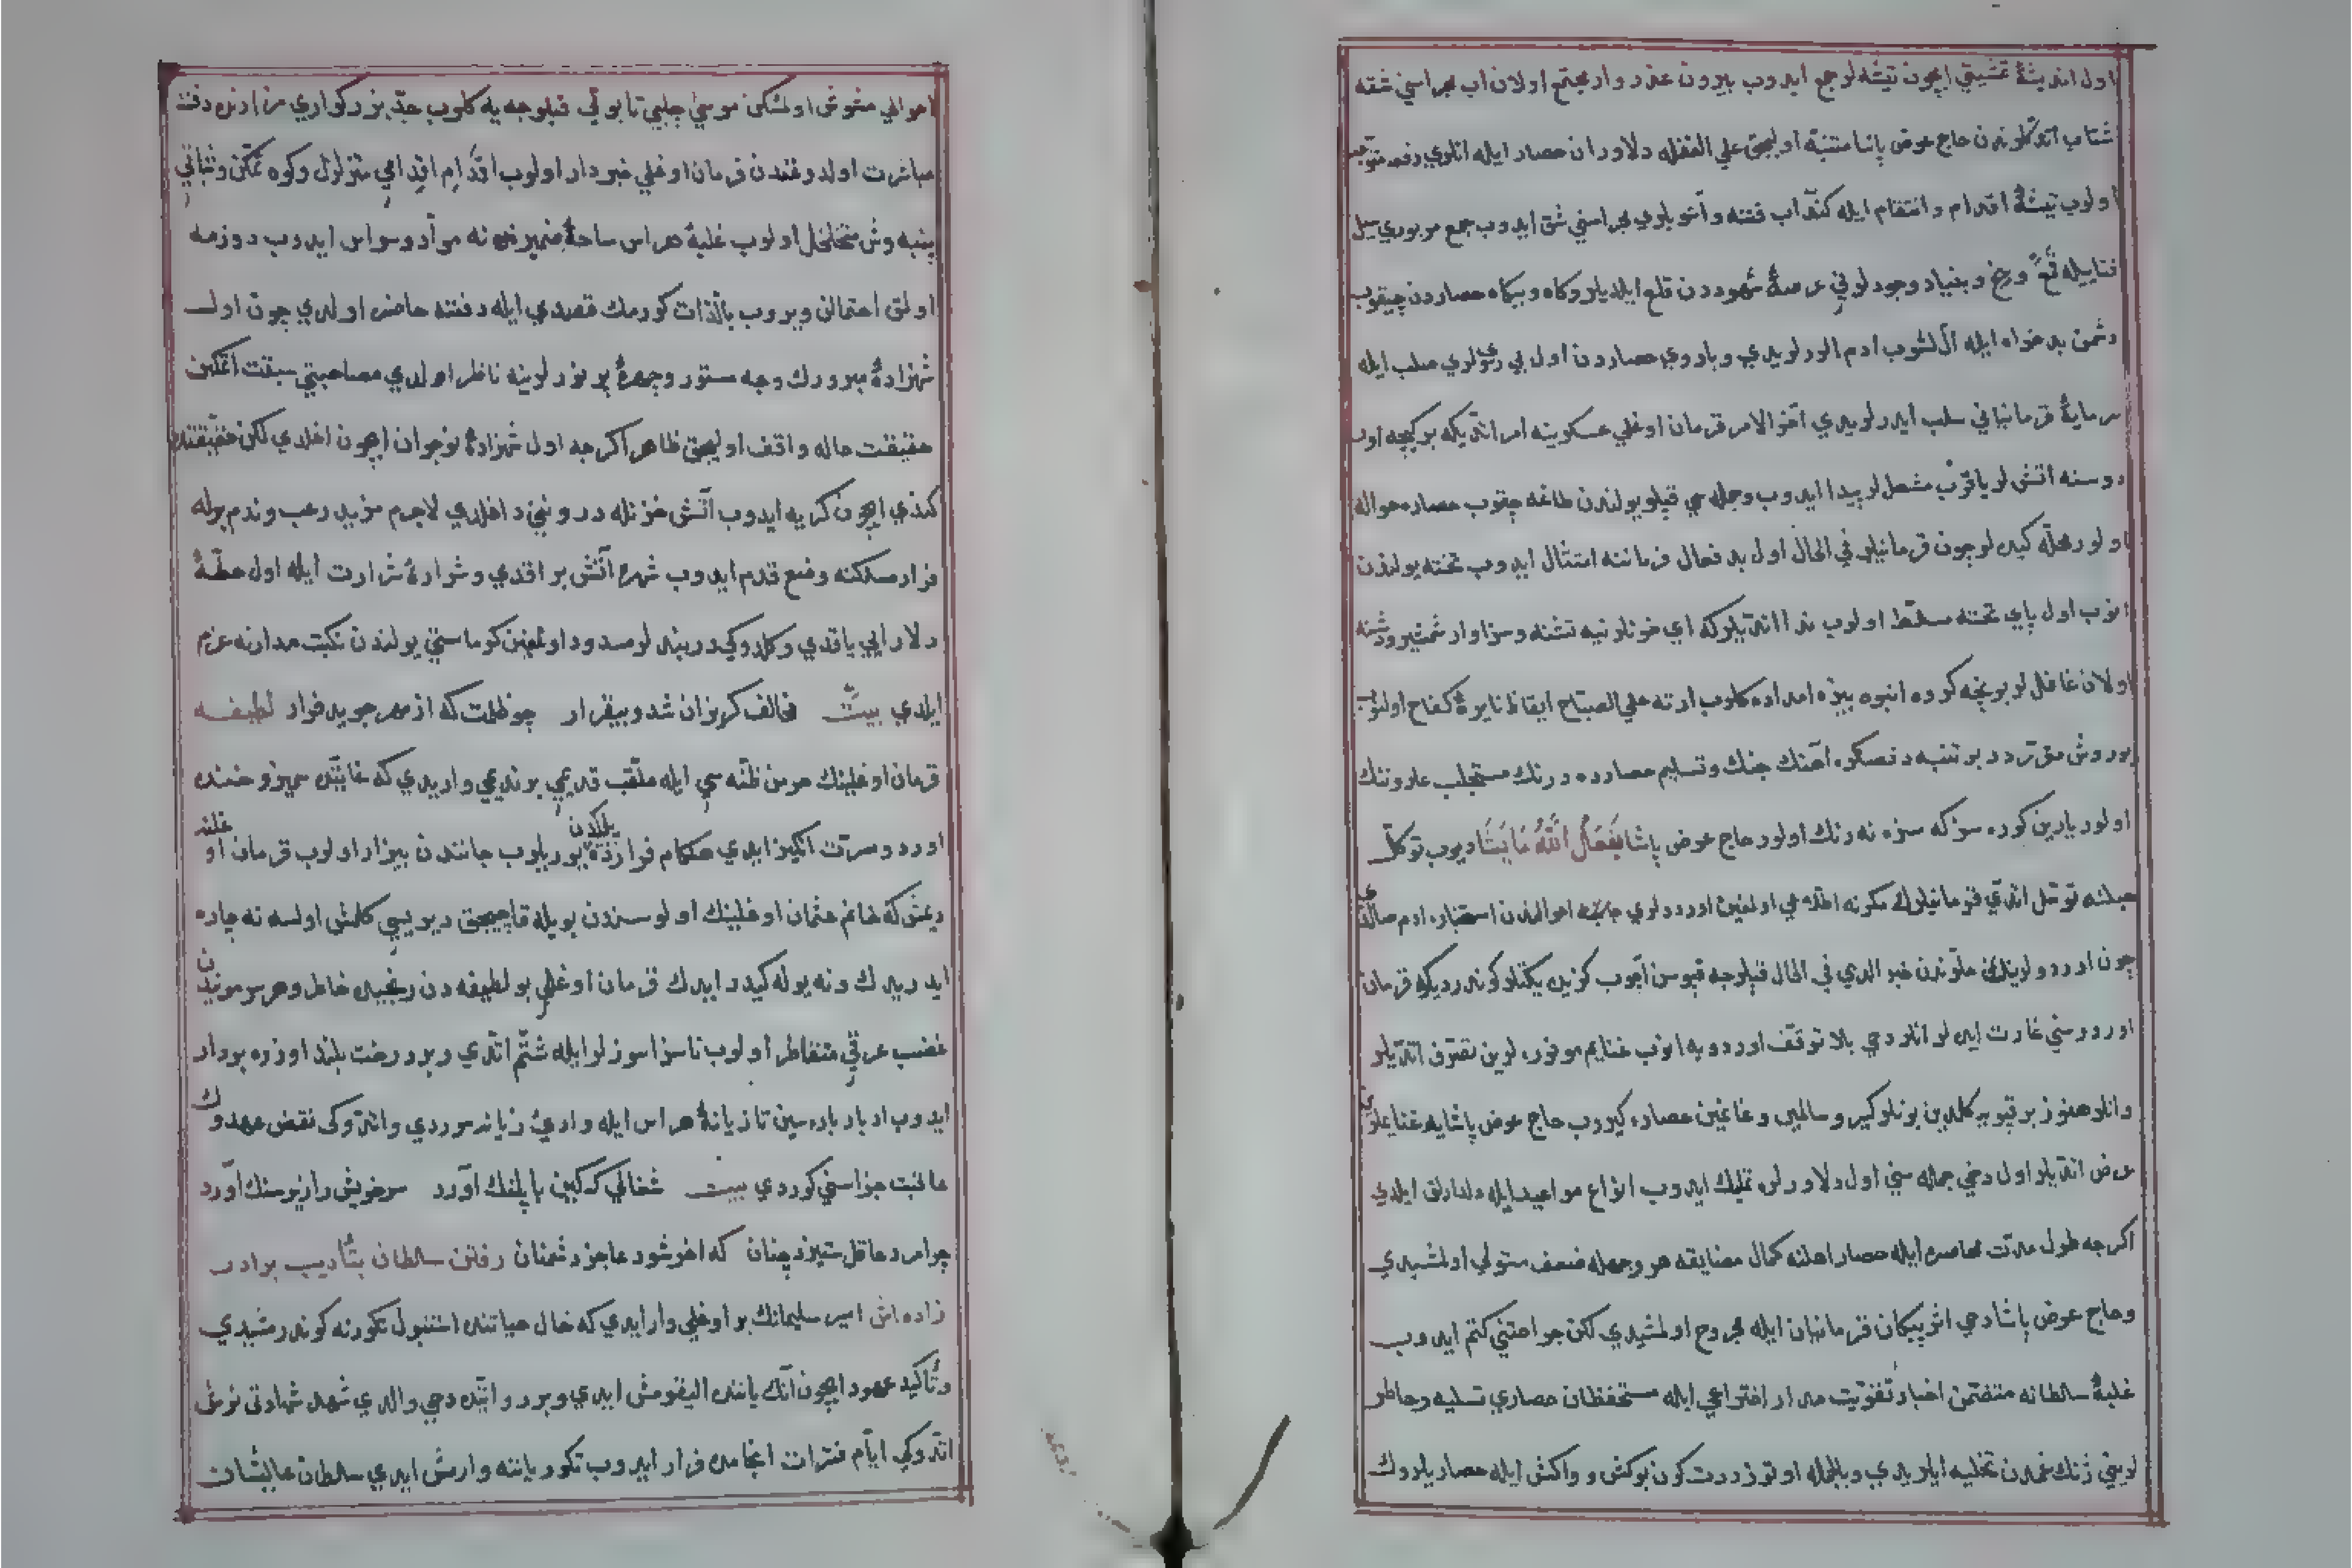 اول اندیشهٔ تمشیتی ایچون تیشه لر جمع ایدوب بیرون عدد وار مجتمع اولان اب مجراسنی شقه
شتاب اتدکلرندن حاج عوض پاشا متنبه اولیجق علی الغفله دلاوران حصار ایله انلری دفعه متوجه
اولوب تیشهٔ اقدام و انتقام ایله کندآب فتنه و آشوبلری مجراسنی شق ایدوب جمع مزبوری سیل
فناییله قع و بیخ و بنیاد وجودلرنی عرصهٔ شهوددن قلع ایلدیلر وکاه وبیکاه حصاردن چیقوب
دشمن بدخواه ایله آل لشوب ادم الورلریدی و باروی حصاردن اول بی لری صلب ایله
سرمایهٔ قرمانیانی سلب ایدرلریدی آخر الامر قرمان اوغلی عسکرینه امر اتدیکه بر کیجه اوب
دوسنه اتش لر یاقوب مشعل لر پیدا ایدوب وجمله سی قپلو یولندن طاغه چقوب حصاره حواله
اولور محله کیده لر چون قرمانیلر فی الحال اول بد فعال فرماننه امتثال ایدوب تخته یولندن
انوب اول پای تخته مسلط اولوب ندا اتدیلر که ای خونلرنیه تشنه وسزاوار شمشیر ودشنه
اولان غافل لر بو نیجه کروه انبوه بیزه امداده کلوب ارته علی الصباح ایقاظ نایرهٔ کفاح اولنوب
یورویش مقرردر بر تنبه دنصکره آهنك جنك وتسلیم حصارده درنك مستجلب عار وننك
اولور یارین کوره سز که سزه نه رنك اولور حاج عوض پاشا یفعل الله ما یشا دیوب توکل
حبلنه توسل اتدی قرمانیلرك مکرنه اولمغین اوردولری احوالندن استخباره ادم صالدی
چون اوردولرینك خلوندن خبر الدی فی الحال قپلوجه قپوسن آچوب کزیده یکتلر کوندردیکه قرمان
اوردوسنی غارت ایده لر انلر دخی بلا توقف اوردویه انوب غنایم موفوره لرین تصرف اتدیلر
وانلر هنوز بر قپویه کلمدین بونلر کیرو سالمین و غانمین حصاره کیروب حاج عوض پاشایه غنایملری
عرض اتدیلر اول دخی جمله سنی اول دلاورلره تملیك ایدوب انواع مواعید ایله دلدارلق ایلدی
اکرچه طول مدت محاصره ایله حصار اهلنه کمال مضایقه هر وجهله ضعف مستولی اولمشیدی
وحاج عوض پاشا دخی اثر پیکان قرمانیان ایله مجروح اولمشیدی لکن جراحتنی کتم ایدوب
غلبهٔ سلطانه متضمن اخبار تقویت مدار اختراعی ایله مستحفظان حصاری تسلیه وخاطر
لرینی ژنك غمدن تخلیه ایلریدی وبالجمله اوتوز درت کون بوکش وواکش ایله حصار یلردوك
احوالی مشوش اولمشکن موسی چلبی تابوتی قپلوجه یه کلوب جد بزرکواری مزارنده دفنه
مباشرت اولدوغندن قرمان اوغلی خبردار اولوب اقدام اقدامی متزلزل وکوه تمکن وثباتی
پنبه وش متخلخل اولوب غلبهٔ هراس ساحهٔ ضمیرینه نه مرآد وسواس ایدوب دوزمه
اولمق احتمالن ویروب بالذات کورمك قصدی ایله دفننه حاضر اولدی چون اول
شهزادهٔ مبرورك وجه مستور وچهرهٔ پرنورلرینه ناظر اولدی مصاحبتی سبقت اتمکین
حقیقت حاله واقف اولیجق ظاهرا اکرچه اول شهزادهٔ نوجوان ایچون اغلدی لکن حقیقتده
کندی ایچون کریه ایدوب آتش حزنله دروننی داغلدی لاجرم مزید رعب وندم یوله
فرار مسلکنه وضع قدم ایدوب شهره آتش براقدی وشرارهٔ شرارت ایله اول خطهٔ
دلارایی یاقدی وکلدوکی دربندلر مسدود اولمغین کرماستی یولندن نکبت مدارنه عزم
ایلدی بیت مخالف کریزان شد وبیقرار چو ظلمت که از مهر جوید فرار لطیفه
قرمان اوغلینك حرمن ظنه سی ایله ملقب قدیمی بر ندیمی واریدی که غایتده سمیز وخنده
اورد ومسرت انکیز ایدی هنکام فرارده یلمکدن یوریلوب جانندن بیزار اولوب قرمان اوغلنه
دیمش که خانم عثمان اوغلینك اولوسندن بویله قاچیجق دیریسی کلمش اولسه نه چاره
ایدریدك ونه یوله کیدر ایدك قرمان اوغلی بو لطیفه دن رنجیده خاطر وهر سر مویندن
غضب عرقی متقاطر اولوب ناسزا سوزلر ایله شتم اتدی وبر درخت بلند اوزره بردار
ایدوب ادبار باره سین تازیانهٔ هراس ایله وادئ زیانه سوردی واتدوکی نقض عهدوك
عاقبت جزاسنی کوردی بیت شغالی که کین با پلنك آورد سر خویش را زیر سنك آورد
چرا مرد عاقل ستیزد چنان که اخر شود عاجز دشمنان رفتن سلطان بتأدیب برادر
زاده اش امیر سلیمانك بر اوغلی وار ایدی که حال حیاتنده استنبول تکورنه کوندرمشیدی
وتأکید عهود ایچون آنك یاننده الیقومش ایدی وبر روایتده دخی والدی شهد شهادتی نوش
اتدوکی ایام فترات انجامده فرار ایدوب تکور یاننه وارمش ایدی سلطان عالیشان